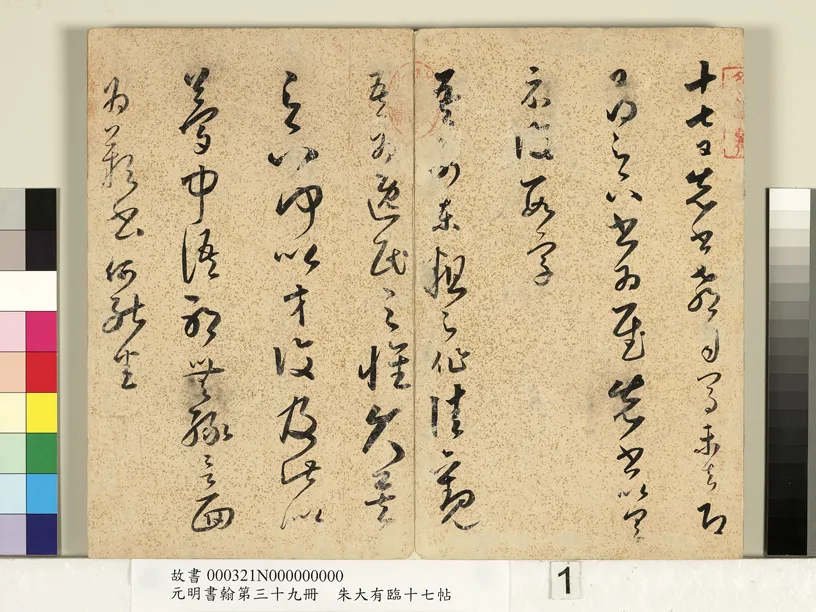 十七日先書郗司馬未去即
日得足下書為慰先書以具
示復數字
吾前東粗足作佳觀
吾為逸民之懷久矣
足下何以方復及此似
夢中語耶無緣言面
為歎書何能悉
故書 000321N000000000
元明書翰第三十九冊　朱大有臨十七帖
1